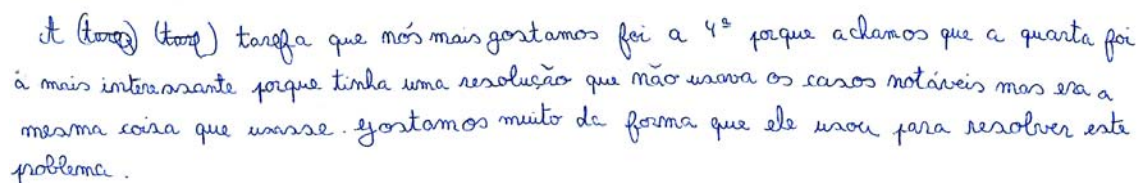 A (tareg) (taref) tarefa que nós mais gostamos foi a 4ª porque achamos que a quarta foi
à mais interessante porque tinha uma resolução que não usava os casos notáveis mas era a
mesma coisa que usasse. Gostamos muito da forma que ele usou para resolver este
problema.